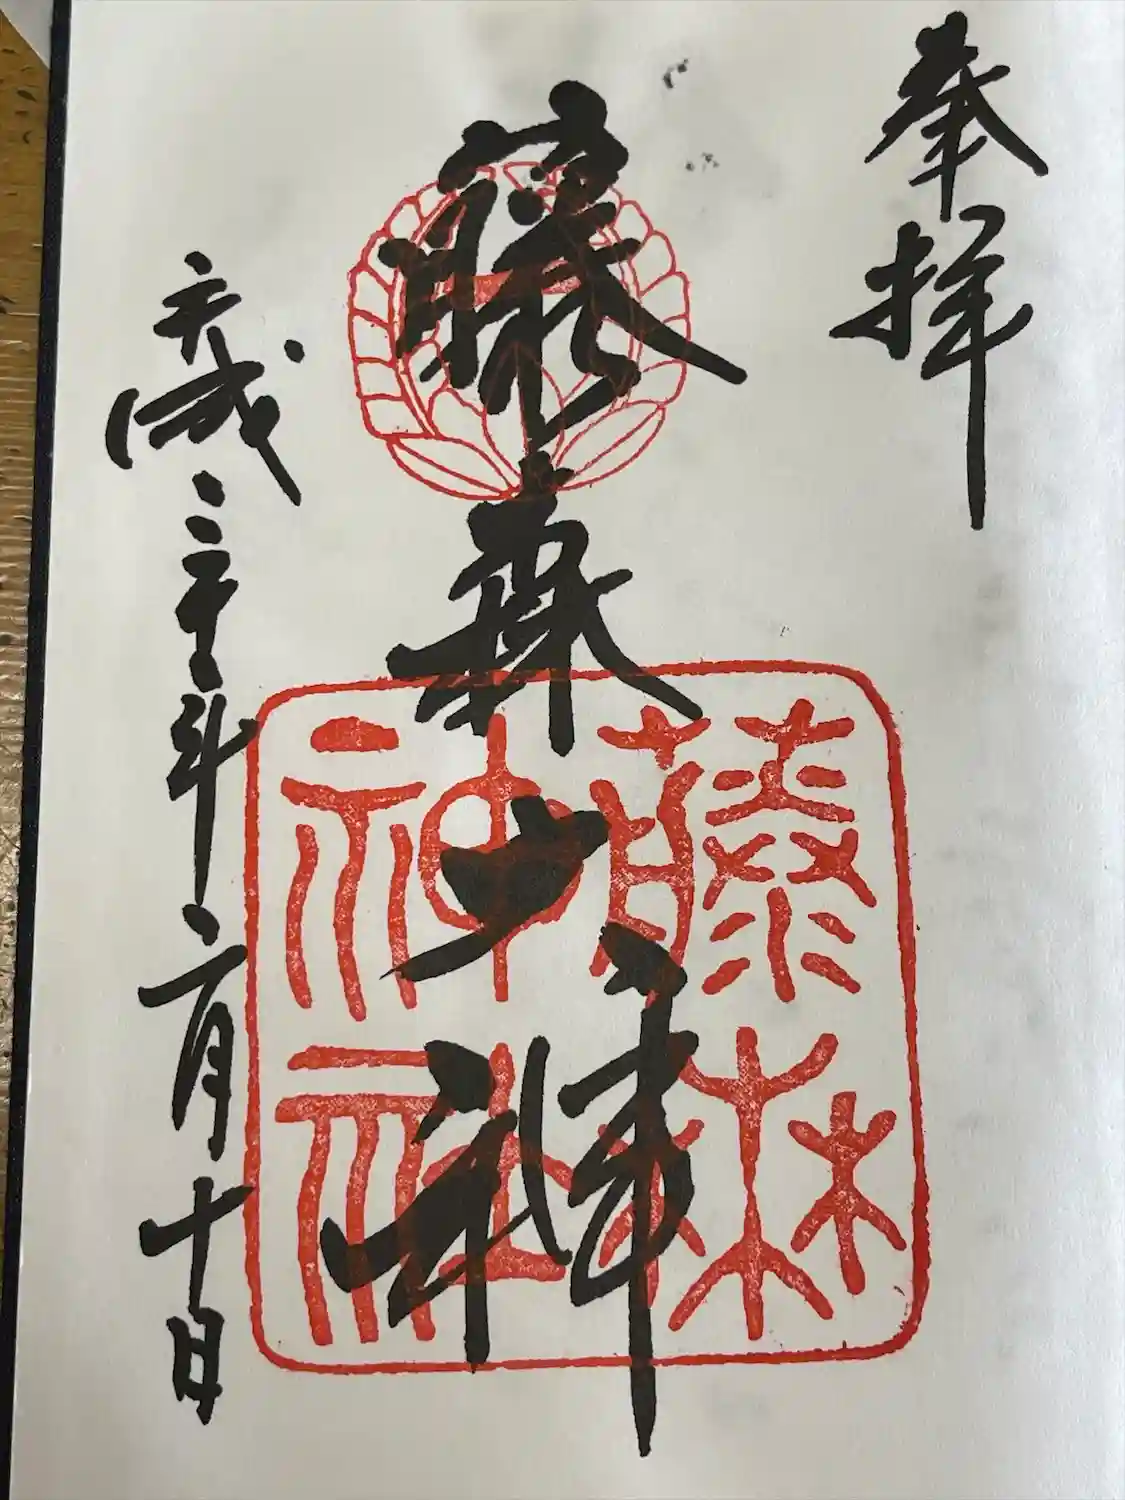 奉拝
藤森神社
平成三十年二月十日
藤森
神社